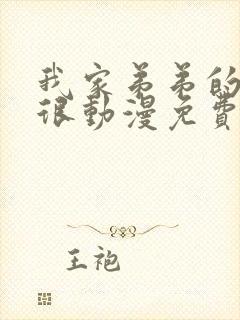 我家弟弟的
很動漫免費
王袍